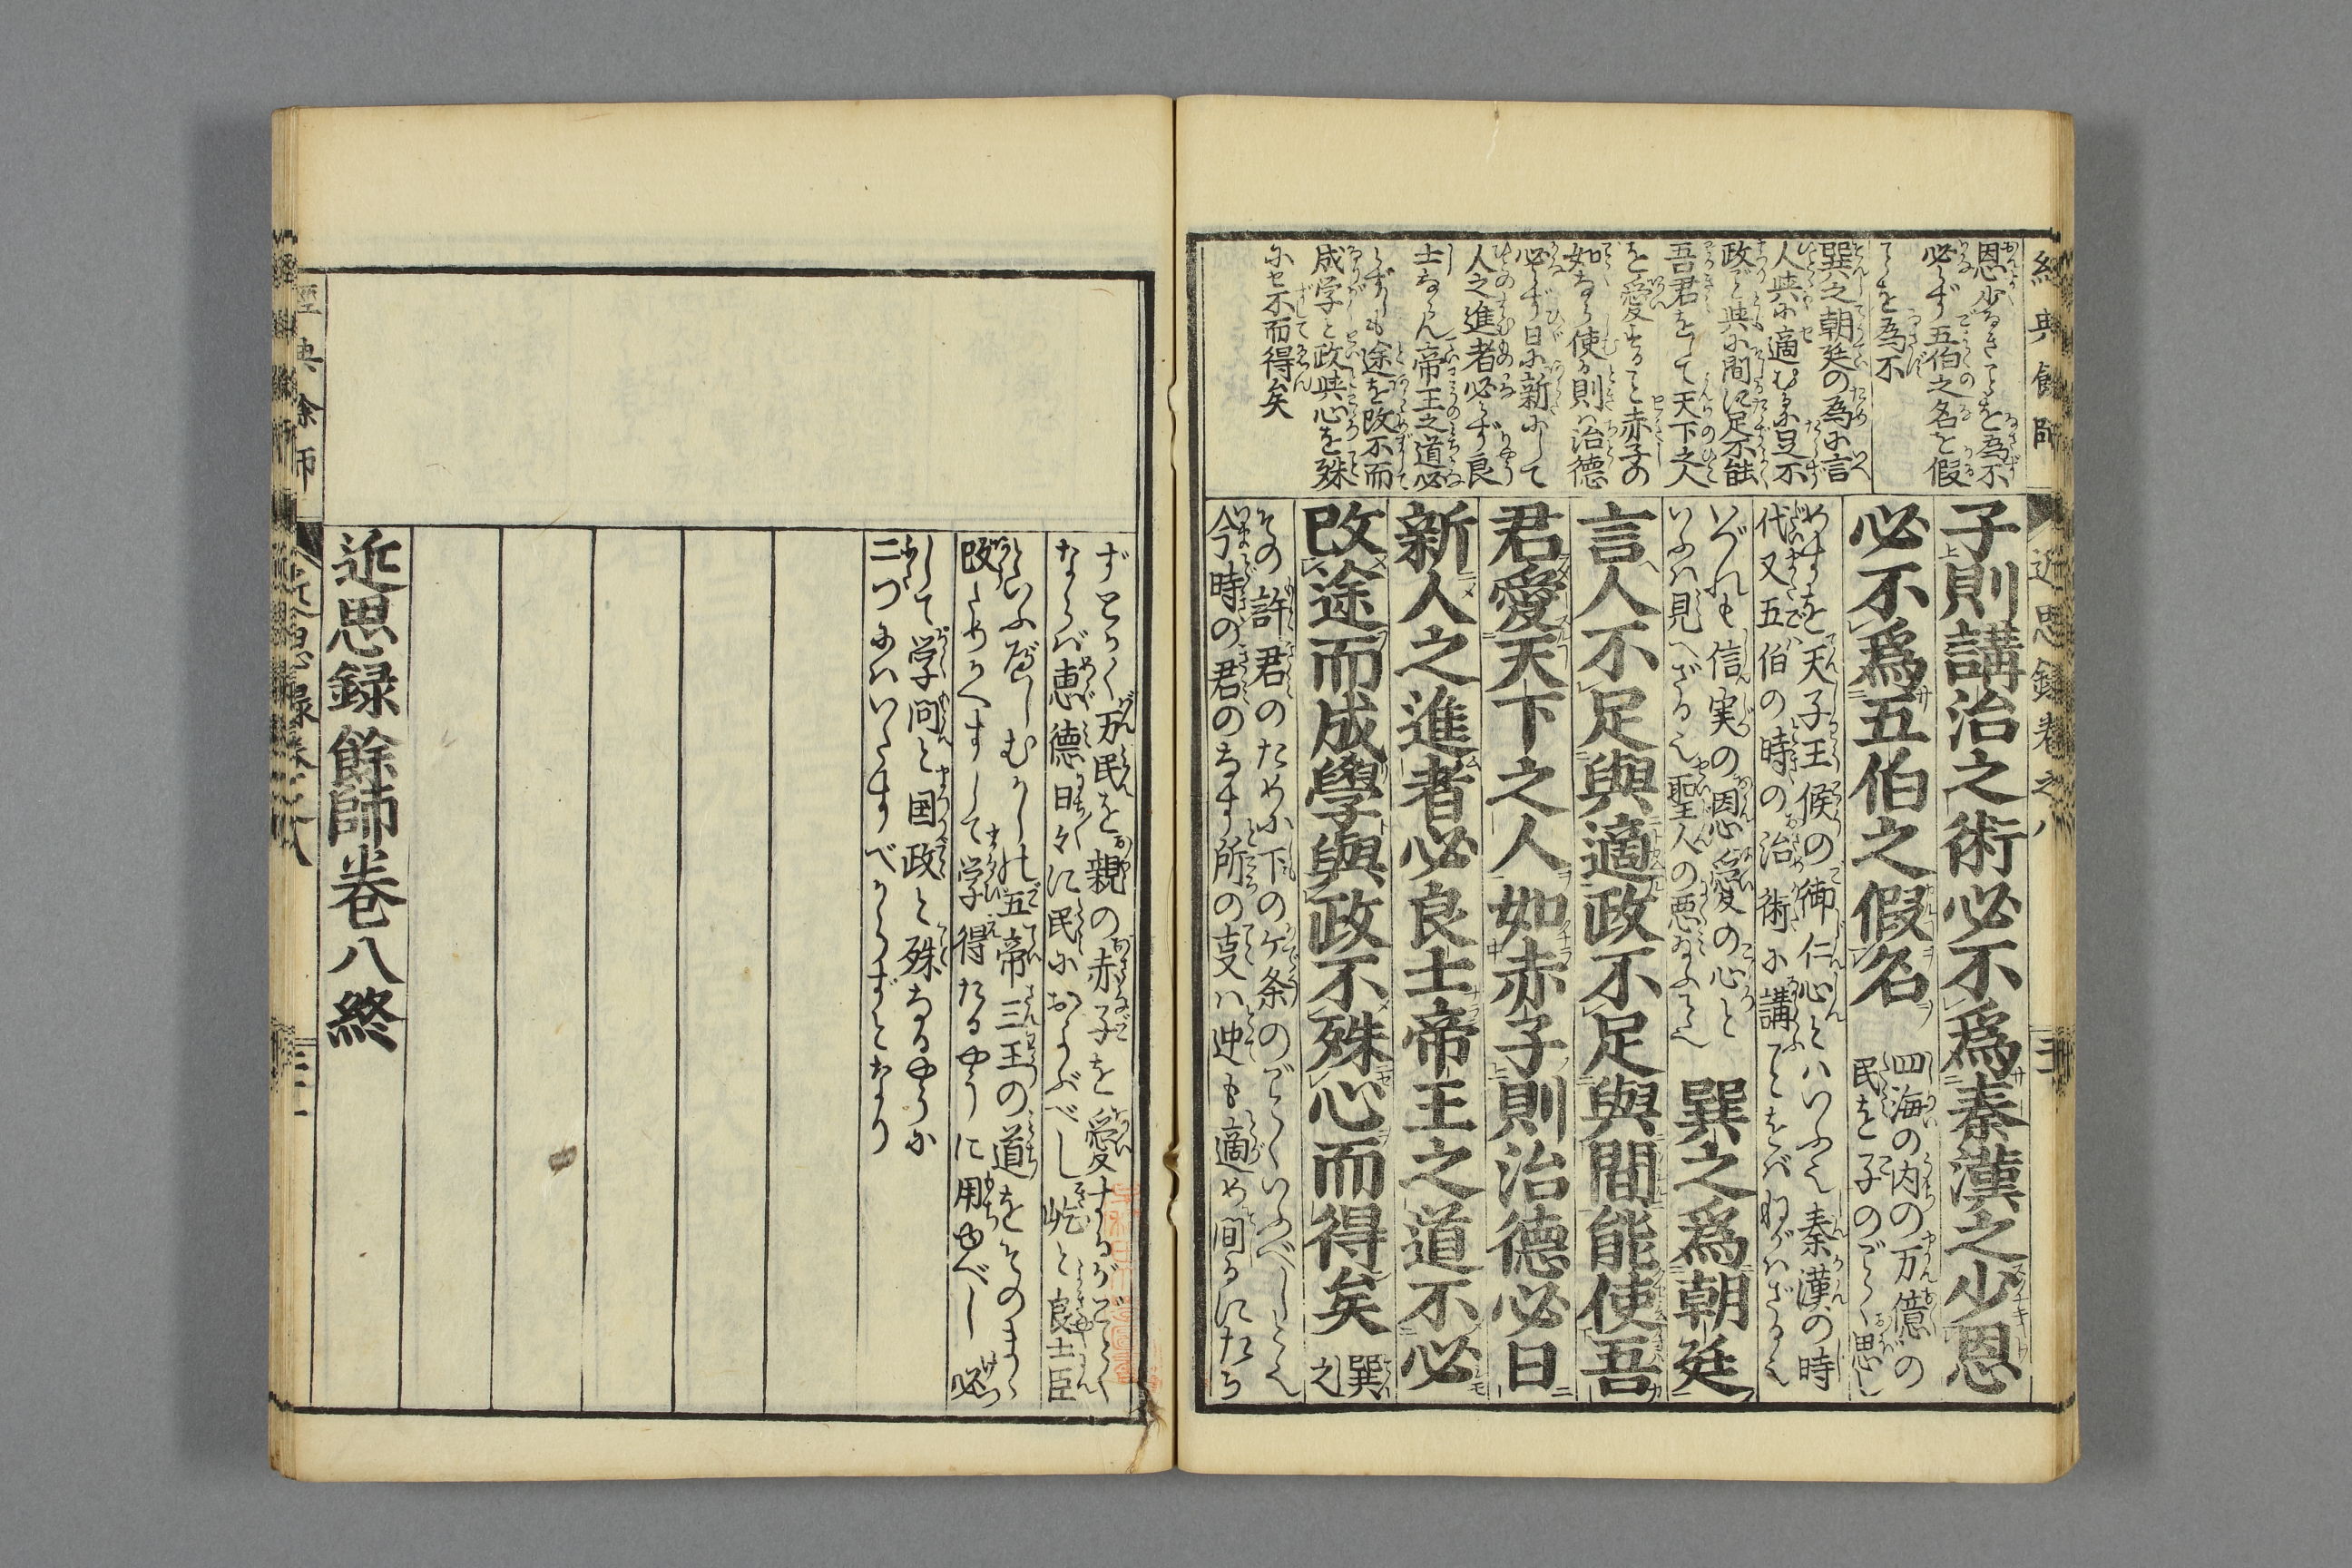 經典餘師
近思録卷之八
三十
恩少なきことを為不
必らず五伯之名を假
ことを為不
巽之朝廷の為に言
人與に適むるに足不
政ごと與に間に足不能
吾君をして天下之人
を愛すること赤子の
如なら使る則ハ治德
必らず日に新にして
人之進者必らず良
士ならん帝王之道必
らずしも途を改不而
成学と政與心を殊
にせ不而得矣
子則講治之術必不爲秦漢之少恩
必不爲五伯之假名
四海の内の万億の
民を子のごとく思し
めすを天子王候の御仁心とハいふ也秦漢の時
代又五伯の時の治術に講ことをばねがハざる也
いづれも信実の恩愛の心と
いふハ見へざる也聖人の悪給ふこと也
巽之爲朝廷
言人不足與適政不足與間能使吾
君愛天下之人如赤子則治德必日
新人之進者必良士帝王之道不必
改途而成學與政不殊心而得矣
巽
之
その許君のために下のケ条のごとくいふべしとなり
今時の君のなす所の支ハ迚も適め間るにたら
ずとかく万民を親の赤子を愛するがごとく
ならば恵德日々に民におよぶべし屹と良士臣
といふべしむかしの五帝三王の道をそのまゝ
改ためかへすして学得たるやうに用ゆべし必
して学問と国政と殊なるやうに
二つにハいたすべからずとなり
近思録餘師卷八終
經典餘師
近思録卷之八
三十一